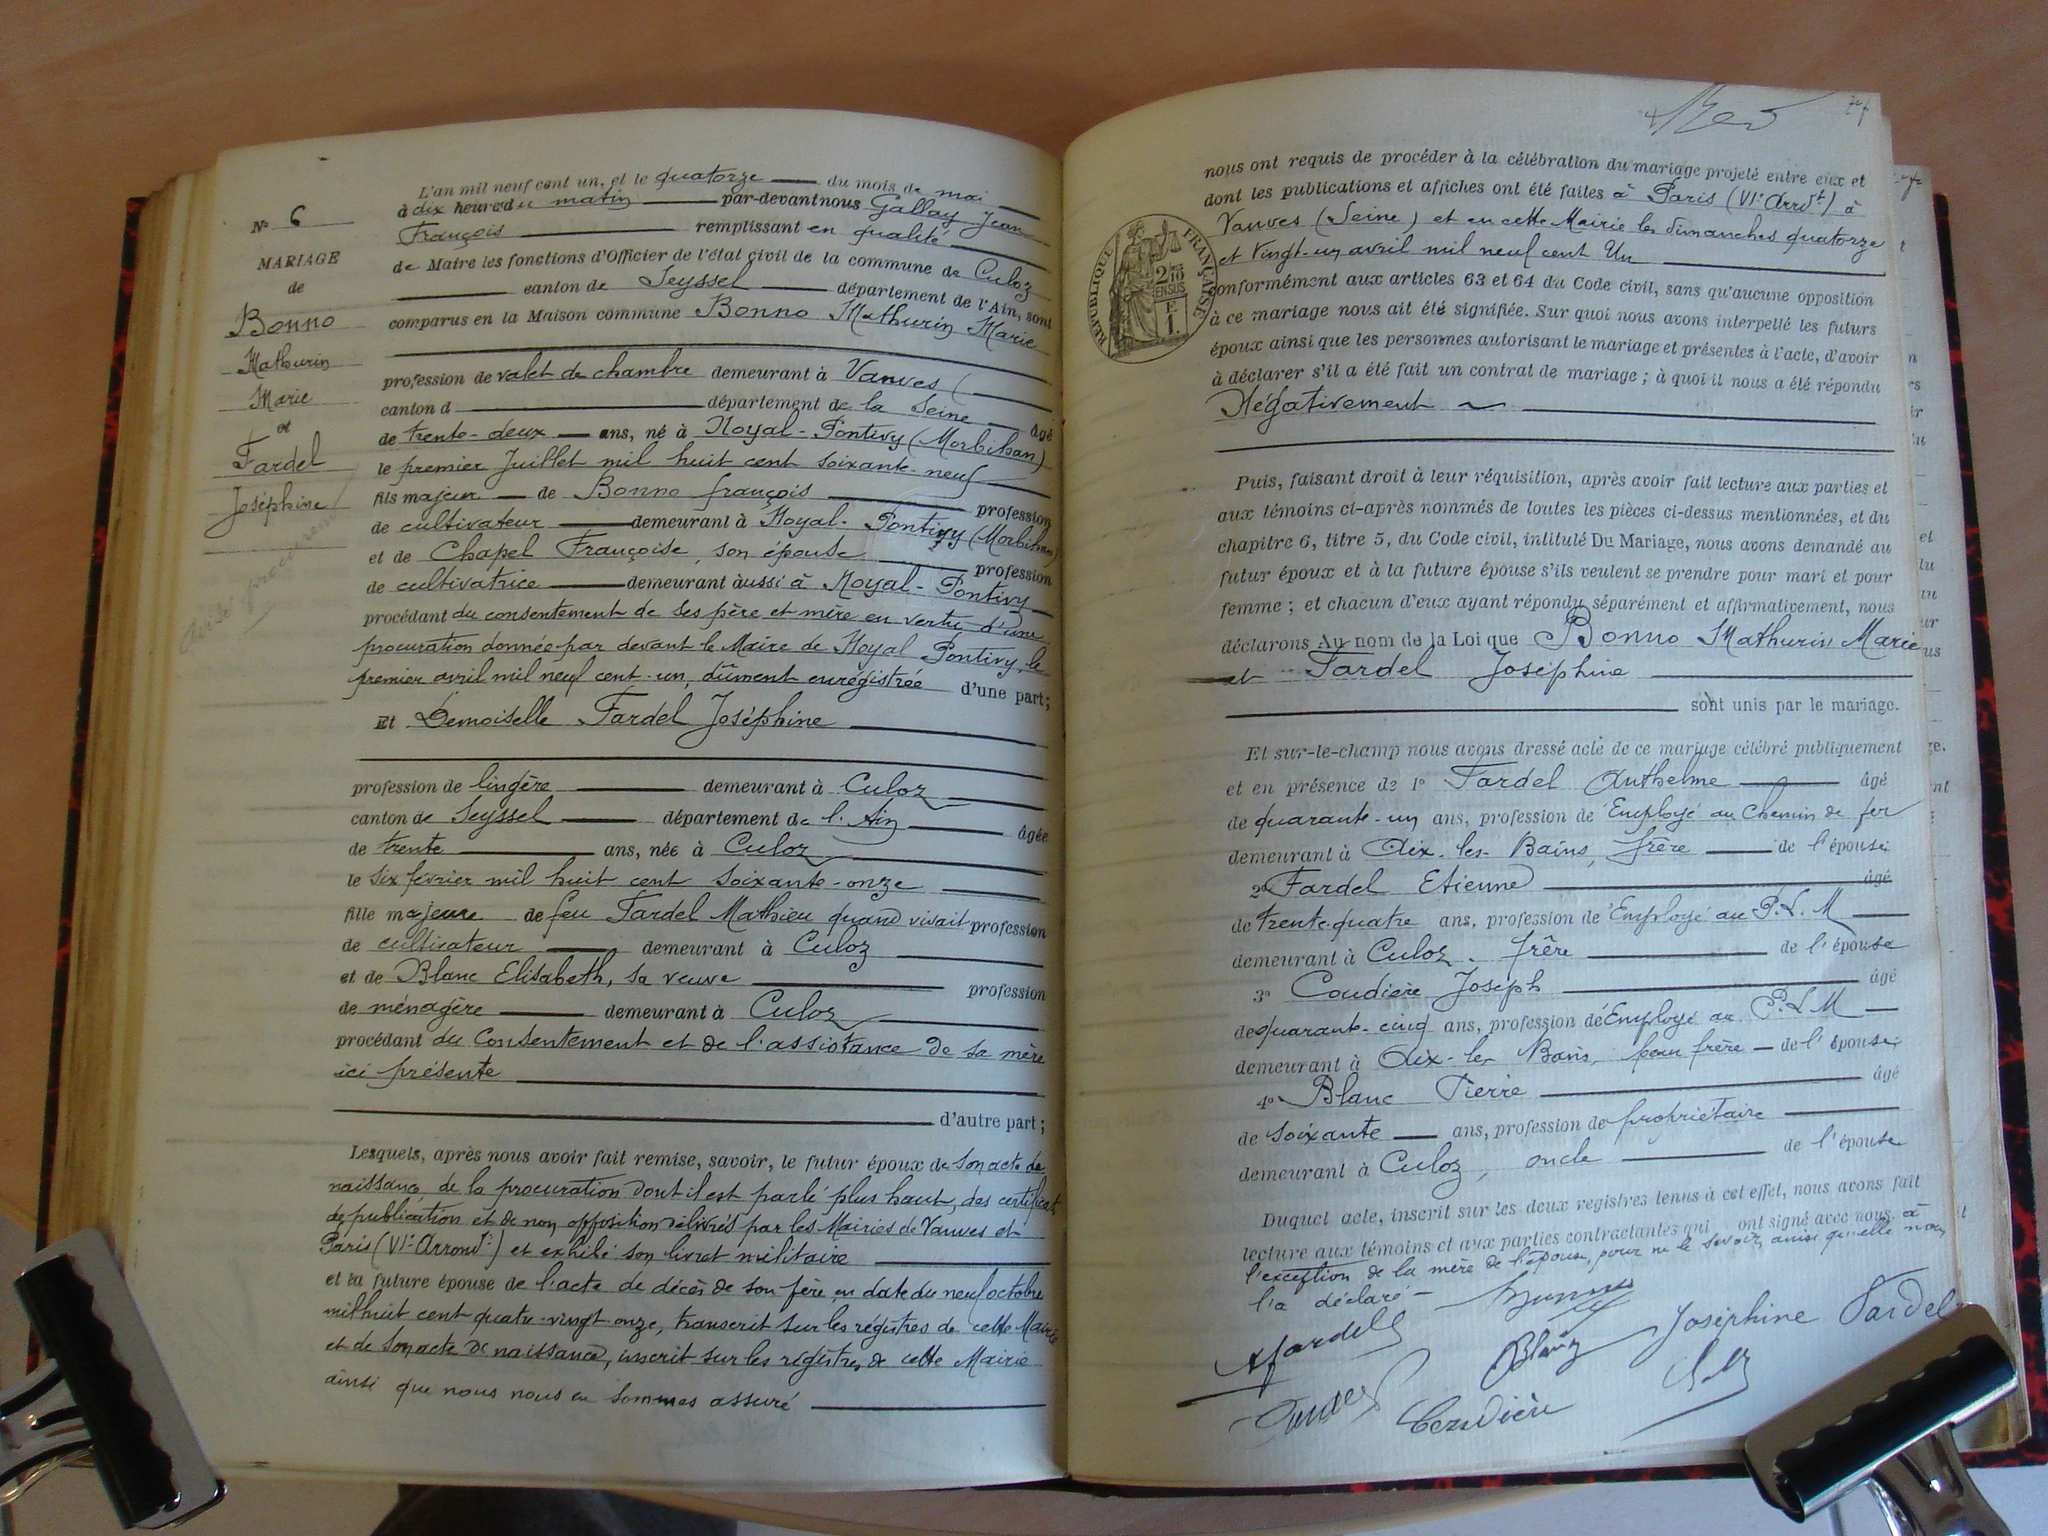 N° 6
MARIAGE
de
Bonno
Mathurin
Marie
et
Fardel
Joséphine
L'an mil neuf cent un, et le quatorze du mois de mai
à dix heures du matin par-devant nous Gallay Jean
François remplissant en qualité
de Maire les fonctions d'Officier de l'état civil de la commune de Culoz
canton de Seyssel département de l'Ain, sont
comparus en la Maison commune Bonno Mathurin Marie
profession de valet de chambre demeurant à Vanves (
canton d département de la Seine âgé
de trente-deux ans, né à Noyal-Pontivy (Morbihan)
le premier Juillet mil huit cent soixante-neuf
fils majeur de Bonno françois profession
de cultivateur demeurant à Noyal-Pontivy (Morbihan)
et de Chapel Françoise, son épouse profession
de cultivatrice demeurant aussi à Noyal-Pontivy
procédant du consentement de ses père et mère en vertu d'une
procuration donnée par devant le Maire de Noyal Pontivy, le
premier avril mil neuf cent-un, dûment enregistrée d'une part;
Et Demoiselle Fardel Joséphine
profession de lingère demeurant à Culoz
canton de Seyssel département de l'Ain âgée
de trente ans, née à Culoz
le six février mil huit cent soixante-onze
fille majeure de feu Fardel Mathieu quand vivait profession
de cultivateur demeurant à Culoz
et de Blanc Elisabeth, sa veuve profession
de ménagère demeurant à Culoz
procédant du Consentement et de l'assistance de sa mère
ici présente
d'autre part;
Lesquels, après nous avoir fait remise, savoir, le futur époux de son acte de
naissance, de la procuration dont il est parlé plus haut, des certificats
de publication et de non opposition délivrés par les Mairies de Vanves et
Paris (VIe Arrondt) et exhibé son livret militaire
et la future épouse de l'acte de décès de son père en date du neuf octobre
mil huit cent quatre-vingt onze, transcrit sur les régistres de cette Mairie
et de son acte de naissance, inscrit sur les régistres de cette Mairie
ainsi que nous nous en sommes assuré
nous ont requis de procéder à la célébration du mariage projeté entre eux et
dont les publications et affiches ont été faites à Paris (VIe Arrdt) à
Vanves (Seine) et en cette Mairie les dimanches quatorze
et Vingt-un avril mil neuf cent Un
RÉPUBLIQUE FRANÇAISE
conformément aux articles 63 et 64 du Code civil, sans qu'aucune opposition
à ce mariage nous ait été signifiée. Sur quoi nous avons interpellé les futurs
époux ainsi que les personnes autorisant le mariage et présentes à l'acte, d'avoir
à déclarer s'il a été fait un contrat de mariage; à quoi il nous a été répondu
Négativement
Puis, faisant droit à leur réquisition, après avoir fait lecture aux parties et
aux témoins ci-après nommés de toutes les pièces ci-dessus mentionnées, et du
chapitre 6, titre 5, du Code civil, intitulé Du Mariage, nous avons demandé au
futur époux et à la future épouse s'ils veulent se prendre pour mari et pour
femme; et chacun d'eux ayant répondu séparément et affirmativement, nous
déclarons Au nom de la Loi que Bonno Mathurin Marie
et Fardel Joséphine
sont unis par le mariage.
Et sur-le-champ nous avons dressé acte de ce mariage célébré publiquement
et en présence de 1° Fardel Anthelme âgé
de quarante-un ans, profession de Employé au Chemin de fer
demeurant à Aix-les-Bains, frère de l'épouse
2° Fardel Etienne âgé
de trente-quatre ans, profession de Employé au P.L.M
demeurant à Culoz, frère de l'épouse
3° Coudière Joseph âgé
de quarante-cinq ans, profession de Employé au P.L.M
demeurant à Aix-les Bains, beau frère de l'épouse
4° Blanc Pierre âgé
de soixante ans, profession de propriétaire
demeurant à Culoz, oncle de l'épouse
Duquel acte, inscrit sur les deux registres tenus à cet effet, nous avons fait
lecture aux témoins et aux parties contractantes qui ont signé avec nous, à
l'exception de la mère de l'épouse, pour ne le savoir, ainsi qu'elle nous
l'a déclaré
Joséphine Fardel
Afardel
Blanc
Coudière